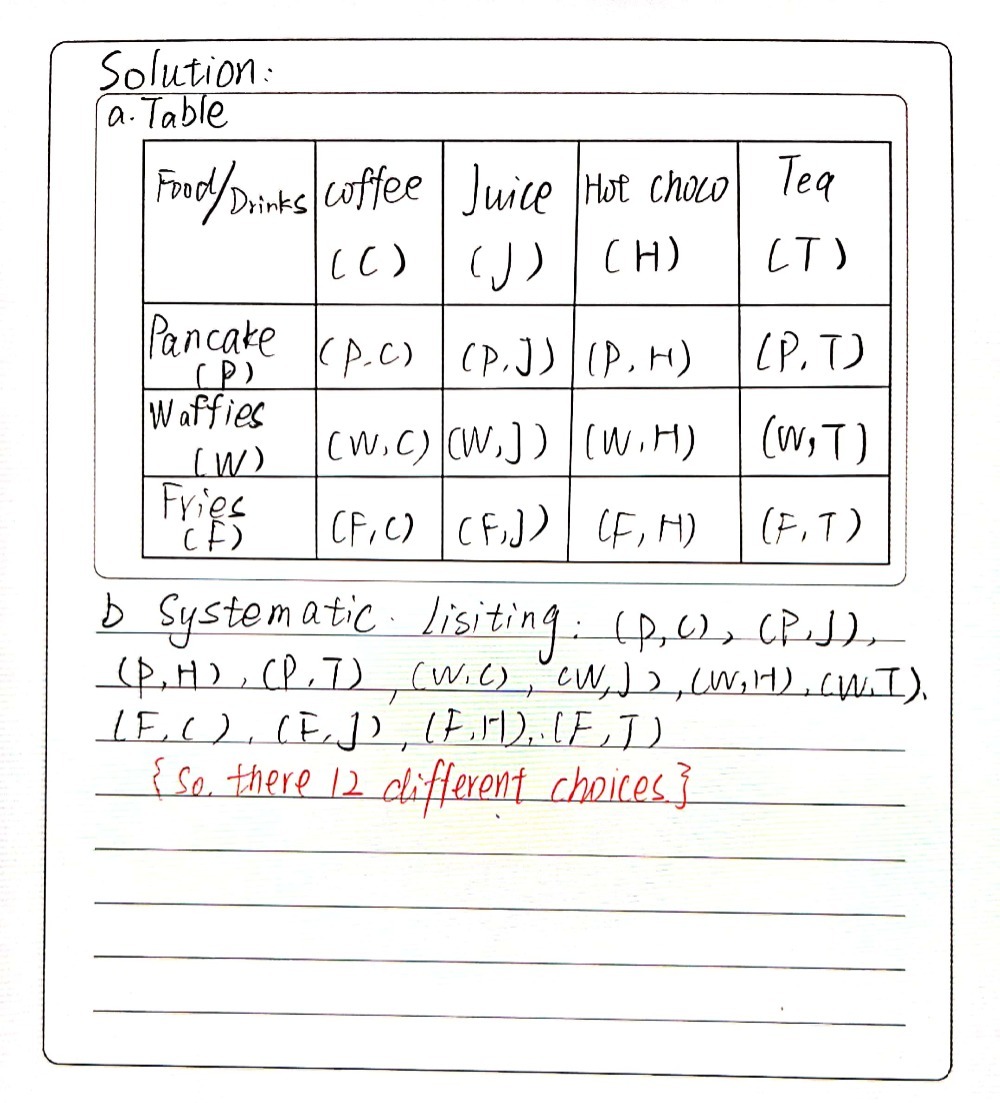 Solution:
a. Table
Food/Drinks coffee (C) Juice (J) Hot choco (H) Tea (T)
Pancake (P) (P.C) (P,J) (P,H) (P,T)
Waffies (W) (W,C) (W,J) (W,H) (W,T)
Fries (F) (F,C) (F,J) (F,H) (F,T)
b Systematic. Lisiting: (P,C), (P,J),
(P,H), (P,T), (W,C), (W,J), (W,H), (W,T),
(F,C), (F,J), (F,H), (F,T)
{So. there 12 different choices}